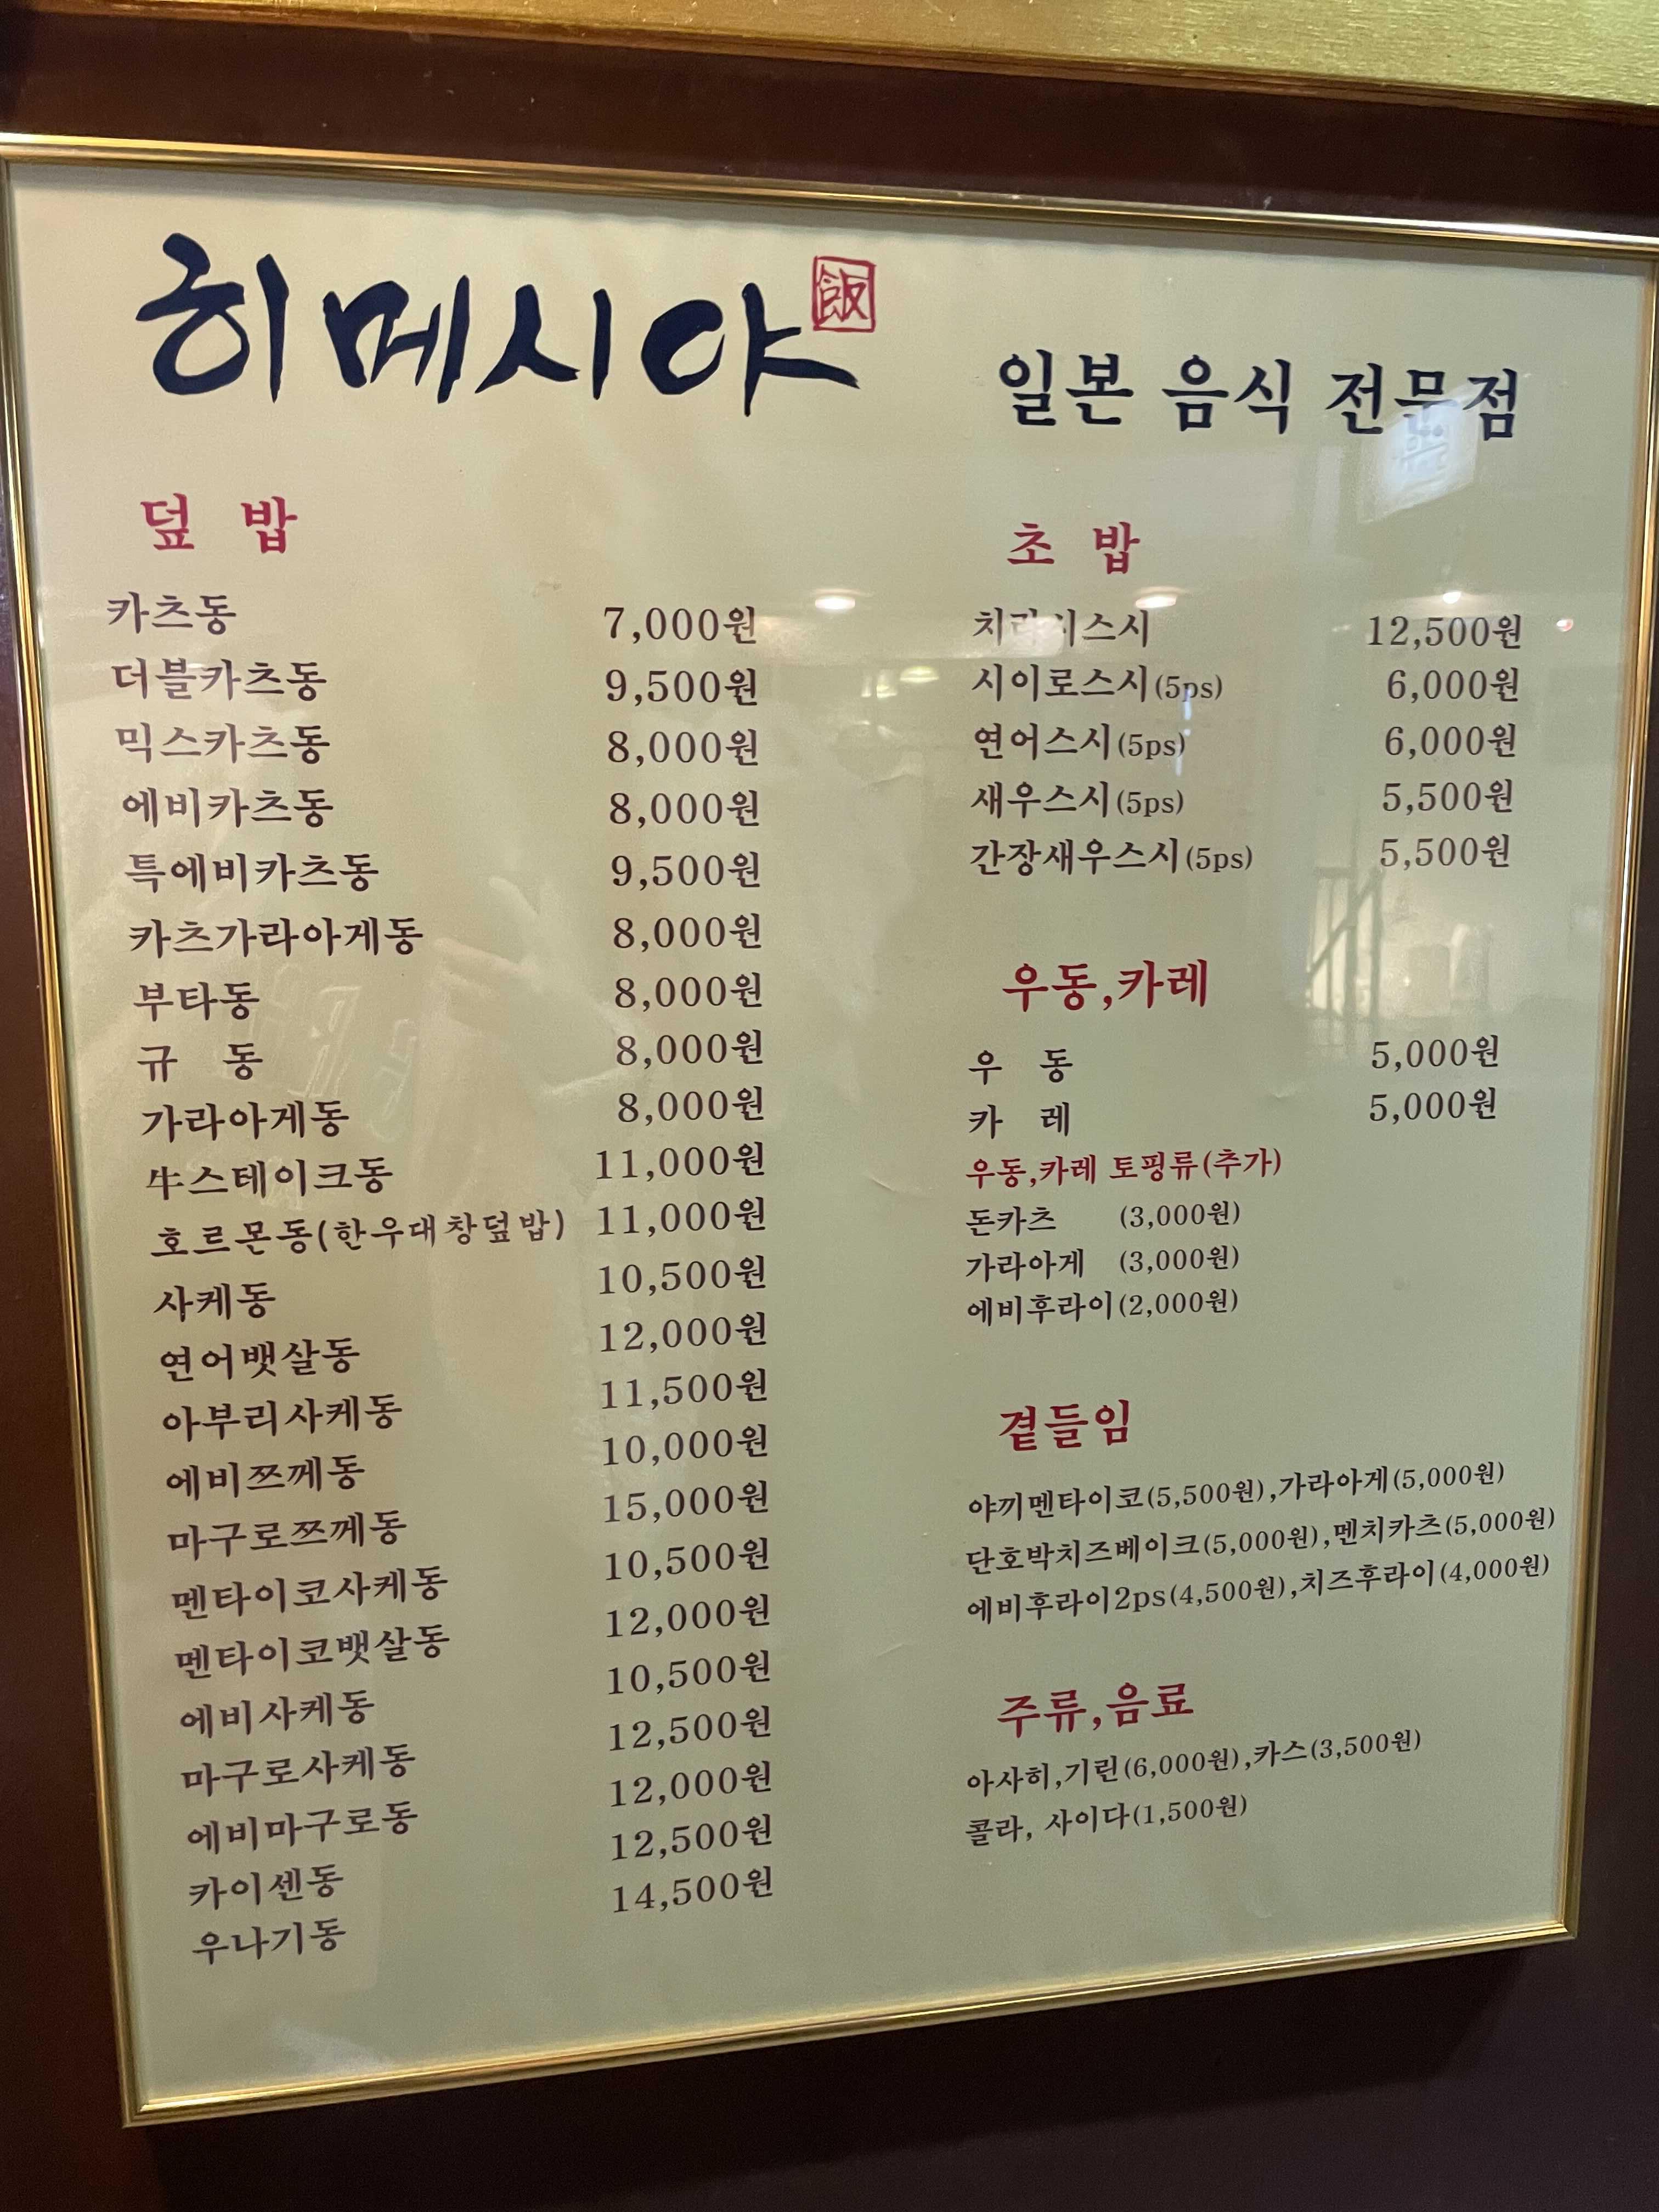 히메시야 飯
일본 음식 전문점
덮 밥
카츠동 7,000원
더블카츠동 9,500원
믹스카츠동 8,000원
에비카츠동 8,000원
특에비카츠동 9,500원
카츠가라아게동 8,000원
부타동 8,000원
규 동 8,000원
가라아게동 8,000원
牛스테이크동 11,000원
호르몬동(한우대창덮밥) 11,000원
사케동 10,500원
연어뱃살동 12,000원
아부리사케동 11,500원
에비쯔께동 10,000원
마구로쯔께동 15,000원
멘타이코사케동 10,500원
멘타이코뱃살동 12,000원
에비사케동 10,500원
마구로사케동 12,500원
에비마구로동 12,000원
카이센동 12,500원
우나기동 14,500원
초 밥
치라시스시 12,500원
시이로스시(5ps) 6,000원
연어스시(5ps) 6,000원
새우스시(5ps) 5,500원
간장새우스시(5ps) 5,500원
우동,카레
우 동 5,000원
카 레 5,000원
우동,카레 토핑류(추가)
돈카츠 (3,000원)
가라아게 (3,000원)
에비후라이(2,000원)
곁들임
야끼멘타이코(5,500원),가라아게(5,000원)
단호박치즈베이크(5,000원),멘치카츠(5,000원)
에비후라이2ps(4,500원),치즈후라이(4,000원)
주류,음료
아사히,기린(6,000원),카스(3,500원)
콜라, 사이다(1,500원)